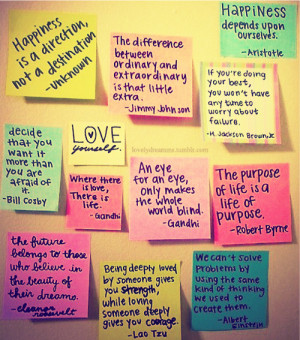 Happiness
is a direction,
not a destination
-unknown
The difference
between
ordinary and
extraordinary
is that little
extra.
-Jimmy Johnson
HAPPINESS
depends upon
ourselves.
-Aristotle
If you're doing
your best,
you won't have
any time to
worry about
failure.
-H. Jackson Brown, Jr.
decide
that you
want it
more than
you are
afraid of
it.
-Bill Cosby
LOVE
yourself.
Where there
is love,
There is
life.
-Gandhi
An eye
for an eye,
only makes
the whole
world blind.
-Gandhi
The purpose
of life is a
life of
purpose.
-Robert Byrne
the future
belongs to those
who believe in
the beauty of
their dreams.
-eleanor
roosevelt
Being deeply loved
by someone gives
you strength,
while loving
someone deeply
gives you courage.
-Lao Tzu
We can't solve
problems by
using the same
kind of thinking
we used to
create them.
-Albert
Einstein